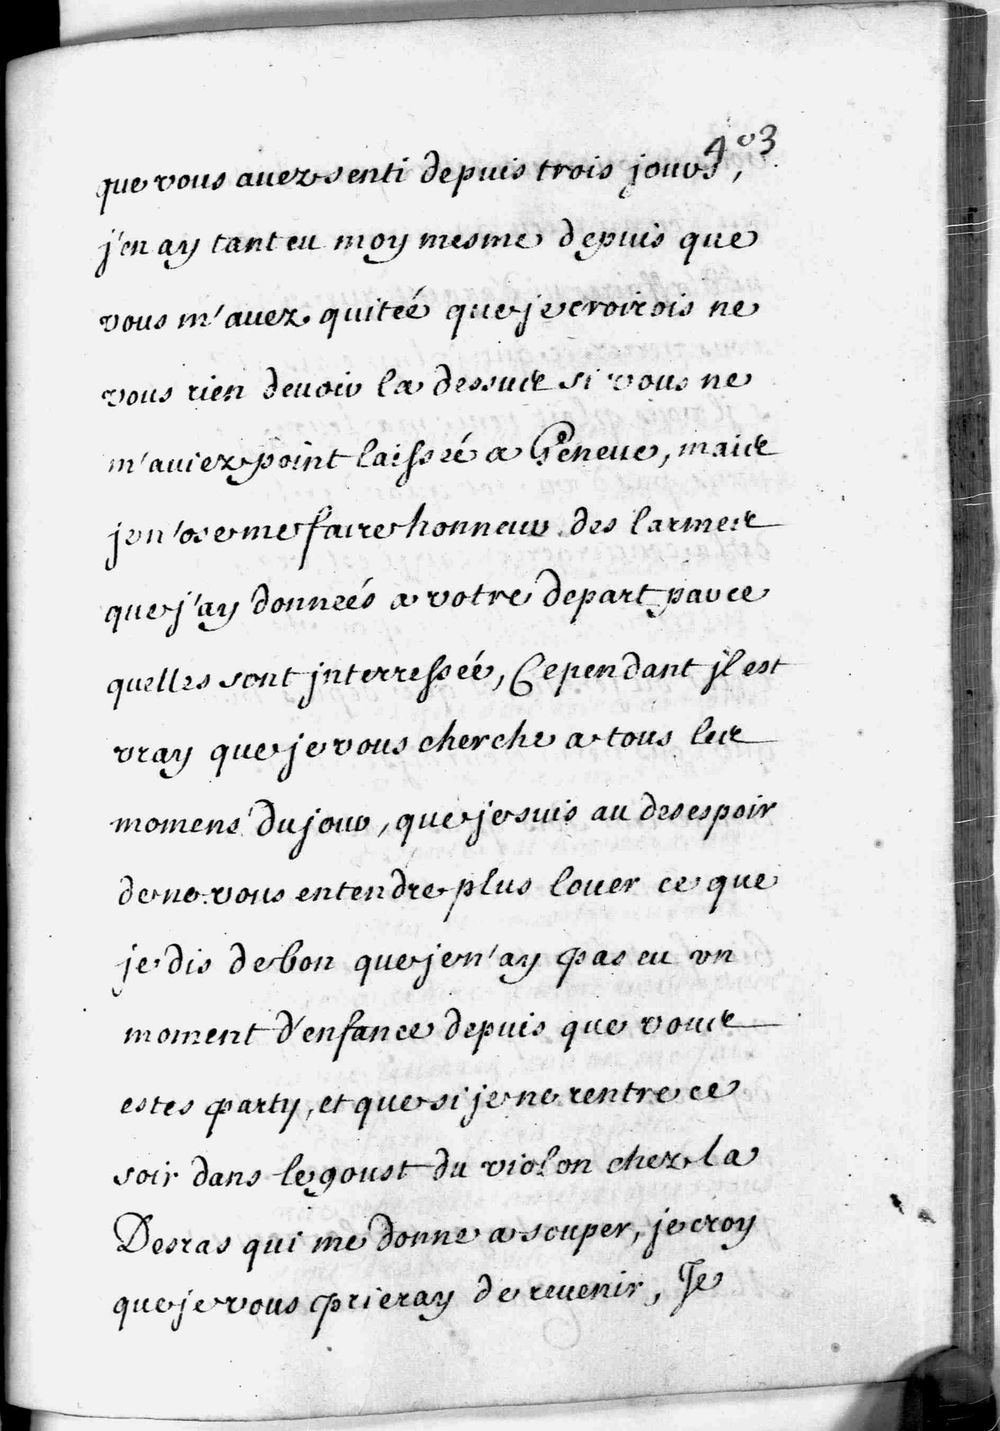 403
que vous avez senti depuis trois jours,
j'en ay tant eu moy mesme depuis que
vous m'avez quiteé que je croirois ne
vous rien devoir la dessus si vous ne
m'aviez point laissée a Geneve, mais
je n'ose me faire honneur des larmes
que j'ay donneés a votre depart parce
quelles sont interresseé, Cependant il est
vray que je vous cherche a tous les
momens du jour, que je suis au desespoir
de ne vous entendre plus louer ce que
je dis de bon que je n'ay pas eu un
moment d'enfance depuis que vous
estes party, et que si je ne rentre ce
soir dans le goust du violon chez la
Desras qui me donne a souper, je croy
que je vous prieray de revenir, Je